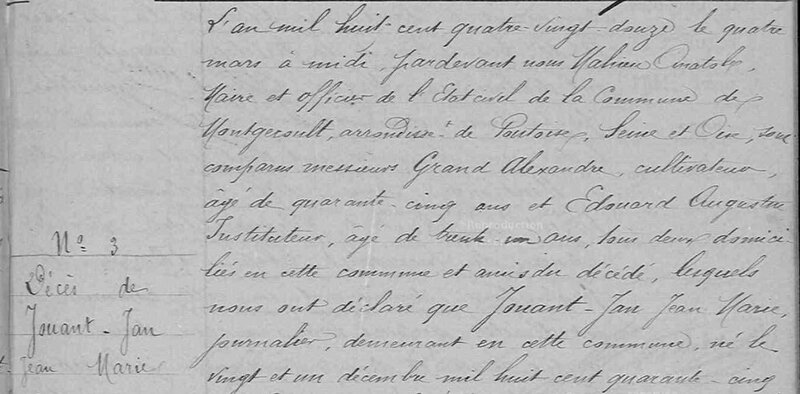 L'an mil huit cent quatre-vingt-douze le quatre
mars à midi, pardevant nous Mahieu Anatole,
Maire et officier de l'Etat civil de la Commune de
Montgeroult, arrondisst de Pontoise, Seine et Oise, sont
comparus messieurs Grand Alexandre, cultivateur,
âgé de quarante-cinq ans et Edouard Augustin
Instituteur, âgé de trente-un ans, tous deux domici-
liés en cette commune et amis du décédé, lesquels
nous ont déclaré que Jouant-Jan Jean Marie,
journalier, demeurant en cette commune, né le
vingt et un décembre mil huit cent quarante-cinq
No 3
Décès de
Jouant-Jan
Jean Marie